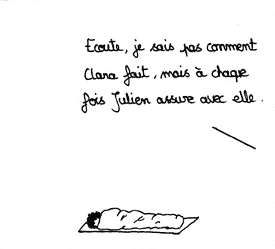 Ecoute, je sais pas comment
Clara fait, mais à chaque
fois Julien assure avec elle.